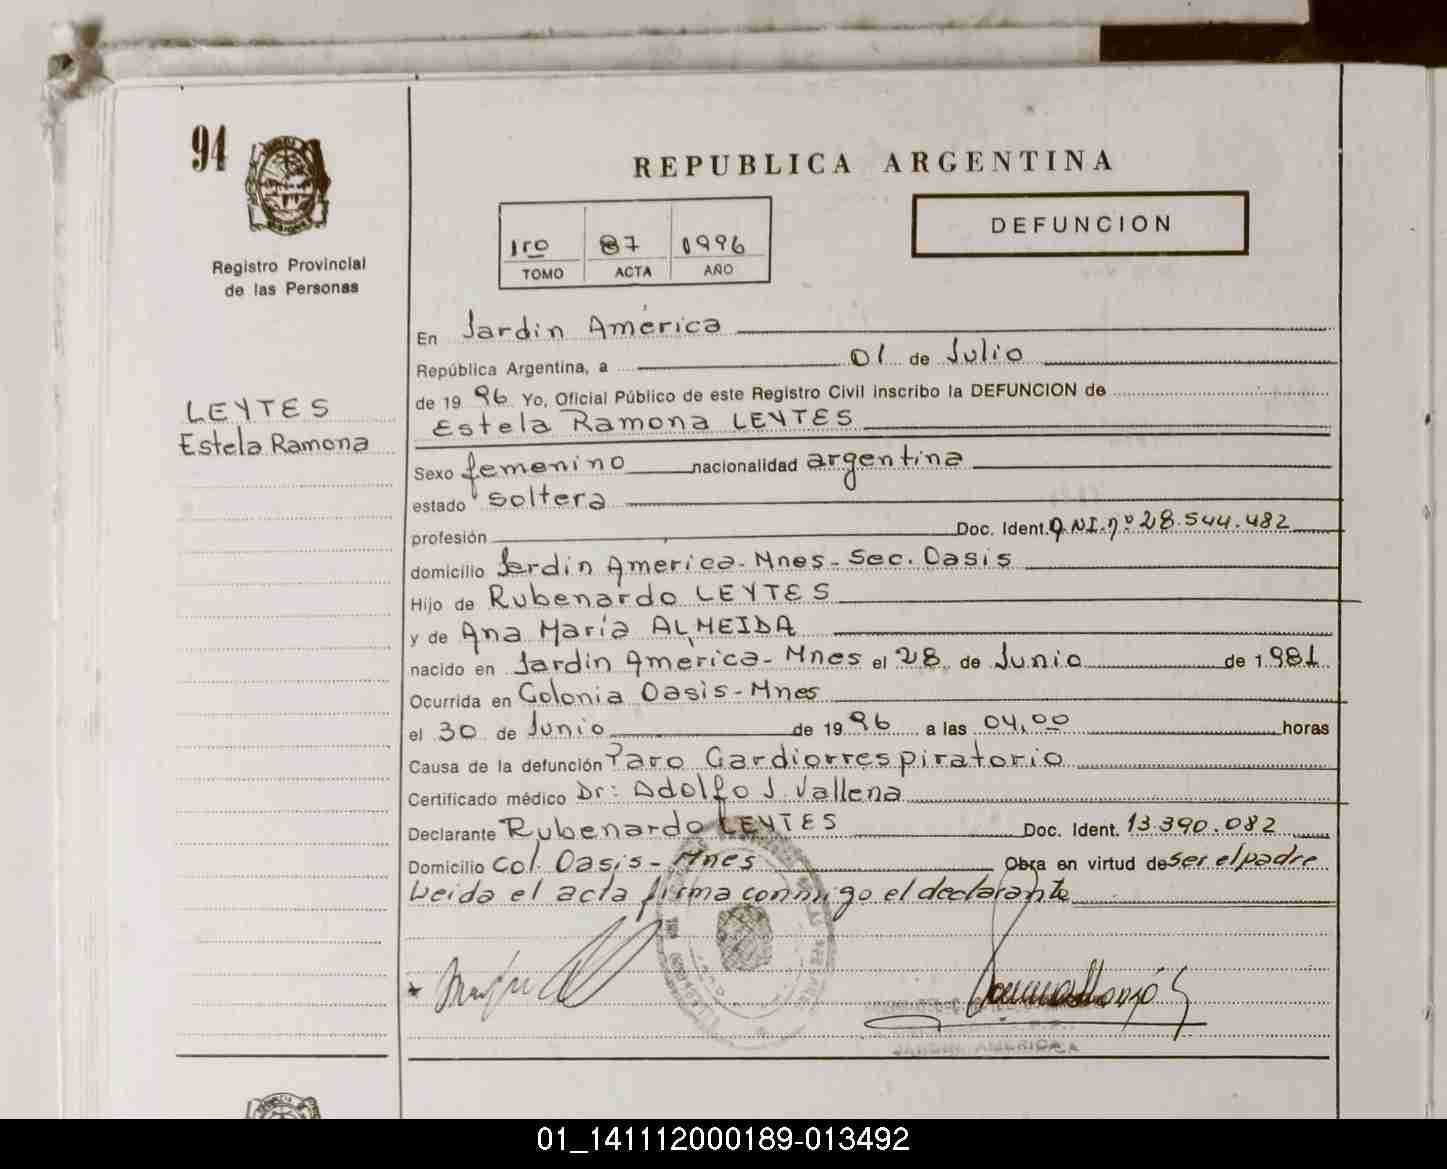 94
REPUBLICA ARGENTINA
DEFUNCION
1ro 87 1996
TOMO ACTA AÑO
Registro Provincial
de las Personas
LEYTES
Estela Ramona
En Jardín América
República Argentina, a 01 de Julio
de 19 96 Yo, Oficial Público de este Registro Civil inscribo la DEFUNCION de
Estela Ramona LEYTES
Sexo femenino nacionalidad argentina
estado soltera
profesión Doc. Ident. D.N.I. nº 28.544.482
domicilio Jardín America - Mnes - Sec. Oasis
Hijo de Rubenardo LEYTES
y de Ana María ALMEIDA
nacido en Jardín América - Mnes el 28 de Junio de 1.981
Ocurrida en Colonia Oasis - Mnes
el 30 de Junio de 19 96 a las 04,00 horas
Causa de la defunción Paro Cardiorrespiratorio
Certificado médico Dr: Adolfo J. Vallena
Declarante Rubenardo LEYTES Doc. Ident. 13.390.082
Domicilio Col. Oasis - Mnes Obra en virtud de ser el padre
Leida el acta firma conmigo el declarante
JARDIN AMERICA
01_141112000189-013492